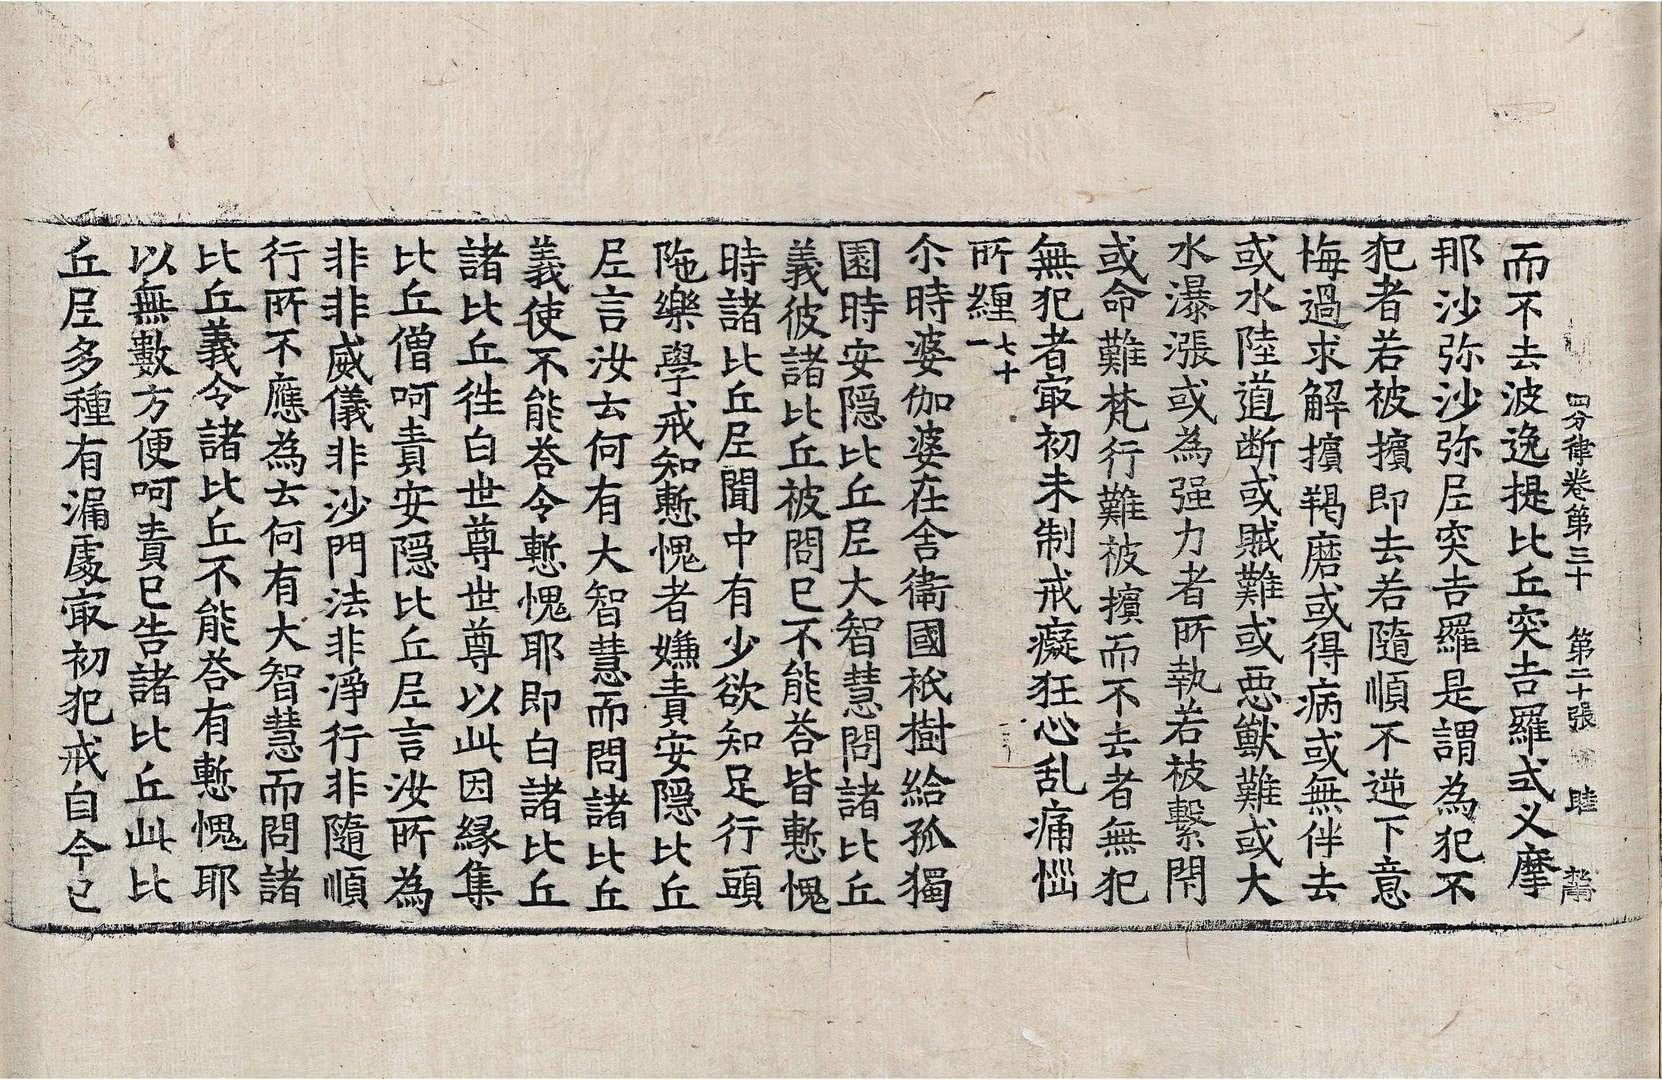 四分律卷第三十 第二十張 睦
而不去波逸提比丘突吉羅式叉摩
那沙弥沙弥尼突吉羅是謂為犯不
犯者若被擯即去若隨順不逆下意
悔過求解擯羯磨或得病或無伴去
或水陸道断或賊難或惡獸難或大
水瀑漲或為强力者所執若被繫閇
或命難梵行難被擯而不去者無犯
無犯者㝡初未制戒癡狂心乱痛惱
所纏一七十
尒時婆伽婆在舍衛國祇樹給孤獨
園時安隱比丘尼大智慧問諸比丘
義彼諸比丘被問已不能荅皆慙愧
時諸比丘尼聞中有少欲知足行頭
陁樂學戒知慙愧者嫌責安隱比丘
尼言汝云何有大智慧而問諸比丘
義使不能荅令慙愧耶即白諸比丘
諸比丘徃白世尊世尊以此因縁集
比丘僧呵責安隱比丘尼言汝所為
非非威儀非沙門法非淨行非隨順
行所不應為云何有大智慧而問諸
比丘義令諸比丘不能荅有慙愧耶
以無數方便呵責已告諸比丘此比
丘尼多種有漏處㝡初犯戒自今已